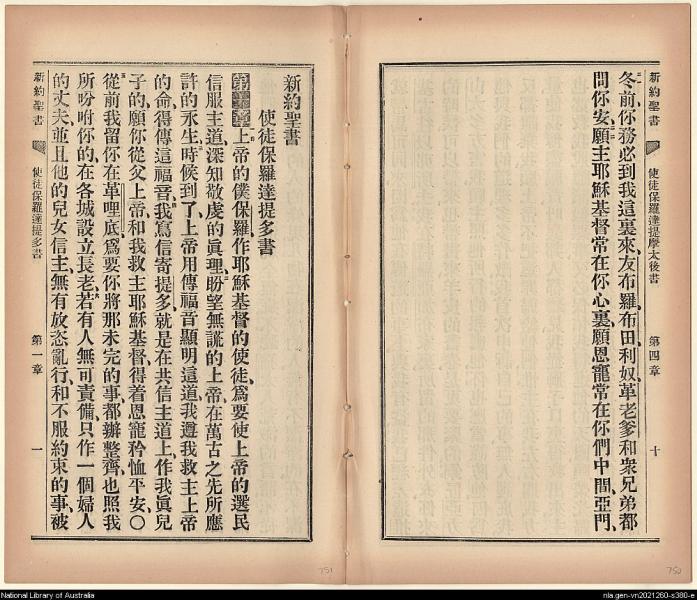 新約聖書 使徒保羅達提摩太後書 第四章 十
冬前、你務必到我這裏來、友布羅、布田、利奴、革老爹、和衆兄弟都
問你安、願主耶穌基督常在你心裏、願恩寵常在你們中間、亞門、
新約聖書
使徒保羅達提多書
第一章 上帝的僕保羅、作耶穌基督的使徒、爲要使上帝的選民
信服主道、深知敬虔的眞理、盼望無謊的上帝、在萬古之先所應
許的永生、時候到了、上帝用傳福音顯明這道、我遵我救主上帝
的命、得傳這福音、我寫信寄提多、就是在共信主道上、作我眞兒
子的、願你從父上帝、和我救主耶穌基督、得着恩寵矜恤平安、〇
從前我留你在革哩底、爲要你將那未完的事、都辦整齊、也照我
所吩咐你的、在各城設立長老、若有人無可責備、只作一個婦人
的丈夫、並且他的兒女信主、無有放恣亂行、和不服約束的事、被
新約聖書 使徒保羅達提多書 第一章 一
751
750
National Library of Australia
nla.gen-vn2021260-s380-e